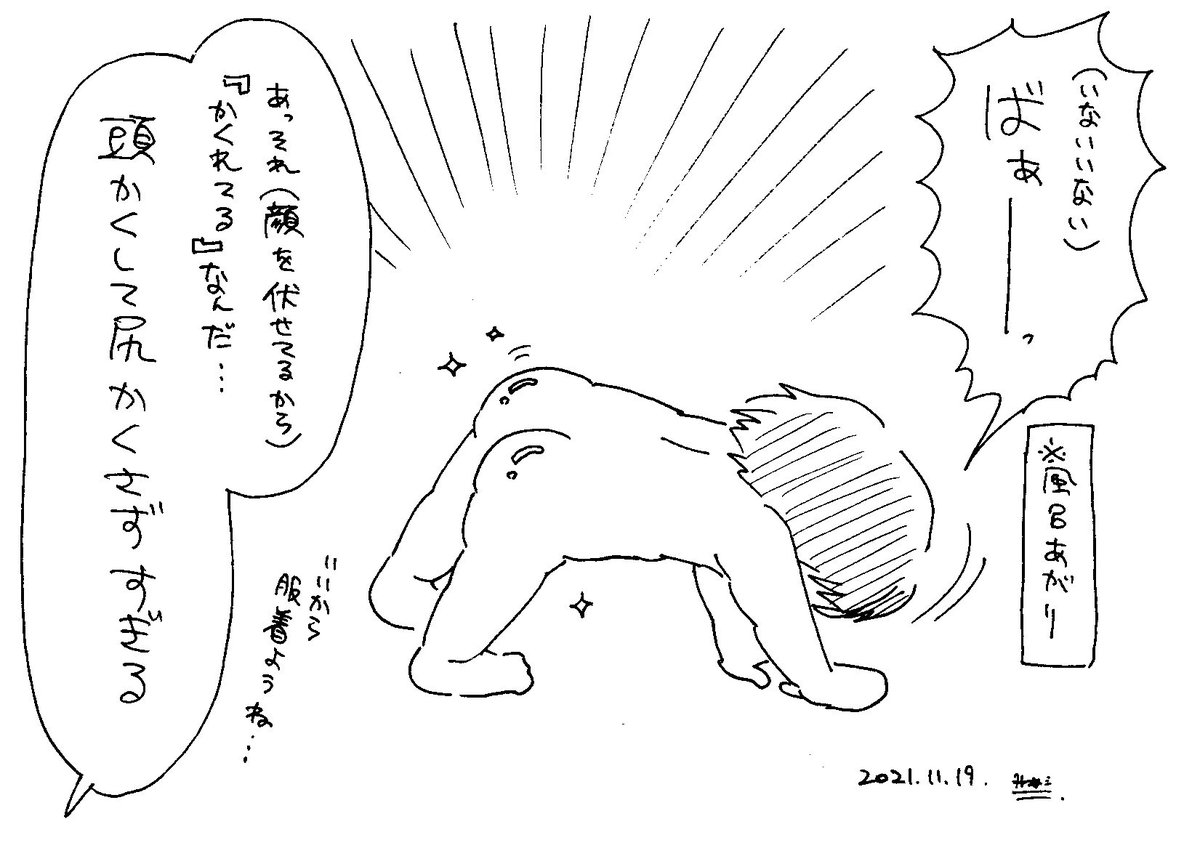 (いないいない)
ばぁーっ
※風呂あがり
あっそれ(顔を伏せてるから)
『かくれてる』なんだ…
頭かくして尻かくさずすぎる
いいから
服着ようね…
2021.11.19.